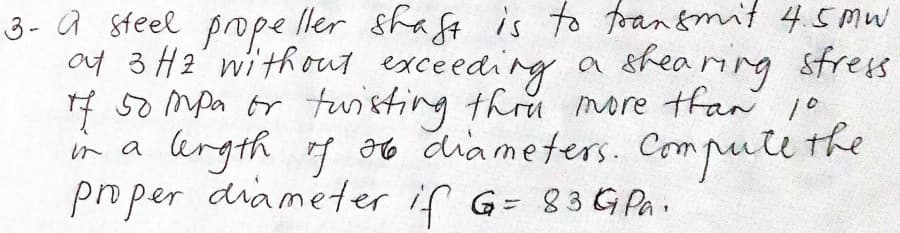 3- A steel propeller shaft is to transmit 4.5 MW
at 3 Hz without exceeding a shearing stress
of 50 Mpa or twisting thru more than 1°
in a length of 26 diameters. Compute the
proper diameter if G = 83 GPa.